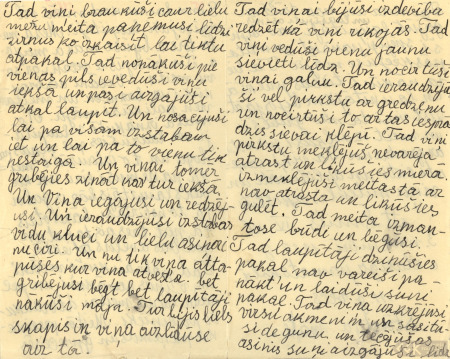 Tad viņi braukuši caur lielu
mežu meita paņēmusi līdzi
zirņus ko izkaisīt lai tiktu
atpakaļ. Tad nonākuši pie
vienas pils ievedūši viņu
iekšā un paši aizgājuši
atkal laupīt. Un nosacijuši
lai pa visām izstabam
iet un lai pa to vienu tik
nestaigā. Un viņai tomēr
gribējies zināt kas tur iekšā
Un viņa iegājusi un redzēj-
usi. Un ieraudzījusi izstabas
vidū kluci un lielu asinai-
nu ciri. Un nu tik viņa atta-
pusēs kur viņa atvesta. bet
gribējusi bēgt bet laupītāji
nākuši mājā. Tur bijis liels
skapis un viņa aizlīduse
aiz tā.
Tad viņai bijusi izdevība
redzēt kā viņi rīkojās. Tad
viņi vedūši vienu jaunu
sievieti līdz. Un nocirtūši
viņai galvu. Tad ieraudzīju-
ši vēl pirkstu ar gredzenu
un nocirtuši to ar tas iespra-
dzis sievai klēpī. Tad viņi
pirkstu meklējuš nevarēja
atrast un likušies miera.
izmeklējuši meitastā ar
nav atrasta un likušies
gulēt. Tad meita izman-
tose brīdi un bēgusi.
Tad laupītāji dzinūšies
pakaļ nav vareiši pa-
nākt un laiduši suni
pakaļ. Tad viņa uzkrējusi
virsū akmenim un sasitu-
si degunu. un tecējušas
asinis suņi aizgājuši